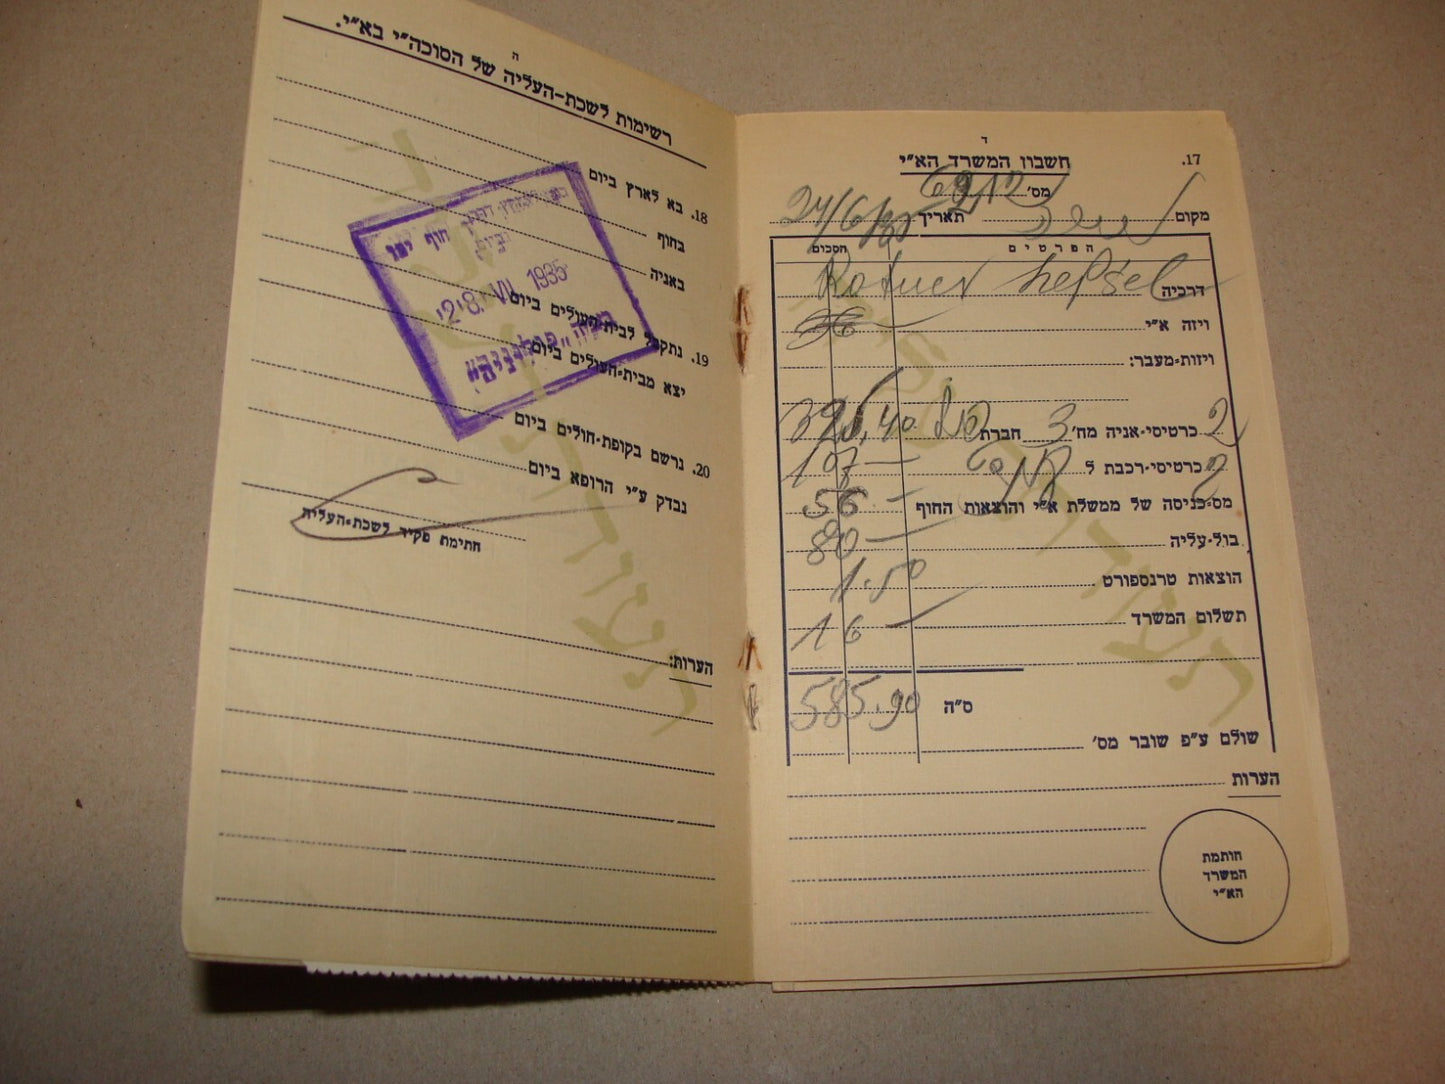 ד
17. חשבון המשרד הא"י
מס'
מקום תאריך 24/6
הפרטים הסכום
דרכיה
ויזה א"י
ויזות-מעבר:
2 כרטיסי-אניה מח' 3 חברת 325,40
2 כרטיסי-רכבת ל 107 —
מס-כניסה של ממשלת א"י והוצאות החוף 56 —
בול-עליה 80 —
הוצאות טרנספורט 1.50
תשלום המשרד 16 —
ס"ה 585.90
שולם ע"פ שובר מס'
הערות
חותמת
המשרד
הא"י
ה
רשימות לשכת-העליה של הסוכה"י בא"י.
18. בא לארץ ביום
בחוף
באניה
19. נתקבל לבית-העולים ביום
יצא מבית-העולים ביום
20. נרשם בקופת-חולים ביום
נבדק ע"י הרופא ביום
חתימת פקיד לשכת-העליה
הערות:
חוף יפו
2 8. VII 1935
"פולוניה"